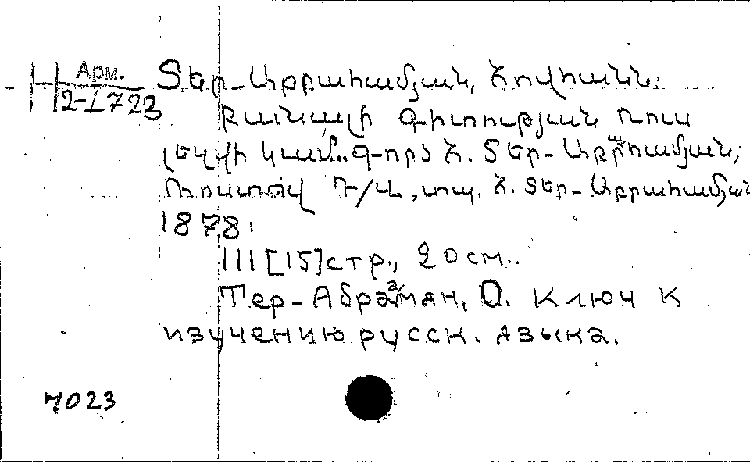 Арм.
2-1723
Տեր-Աբրահամյան, Հովհանն.
Բանալի Գիտության Ռուս
լեզվի կամ... գ-րոց Հ. Տեր-Աբրահամյան,
Ռոստով Դ/Ն, տպ. Հ. Տեր-Աբրահամյան
1878.
111 [15] стр., 20 см.
Тер-Абрамян, О. Ключ к
изучению русск. языка.
7023